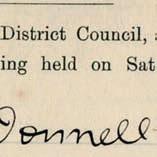 District Council, a
ing held on Sat
Donnell